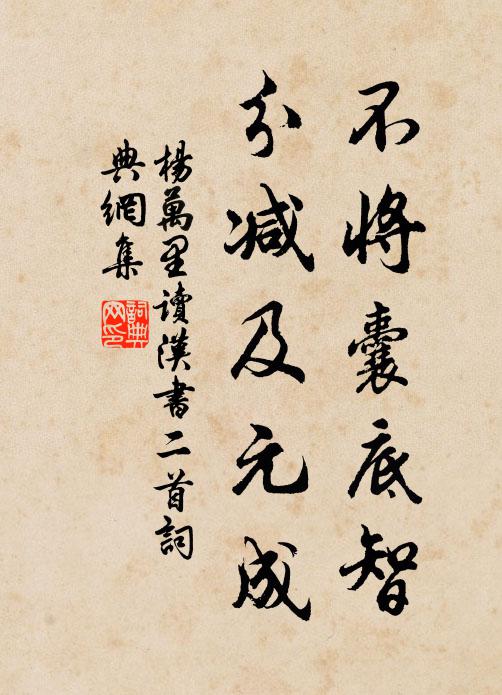 不將囊底智
分減及元成
楊萬里讀漢書二首詞
典網集
詞典
网印